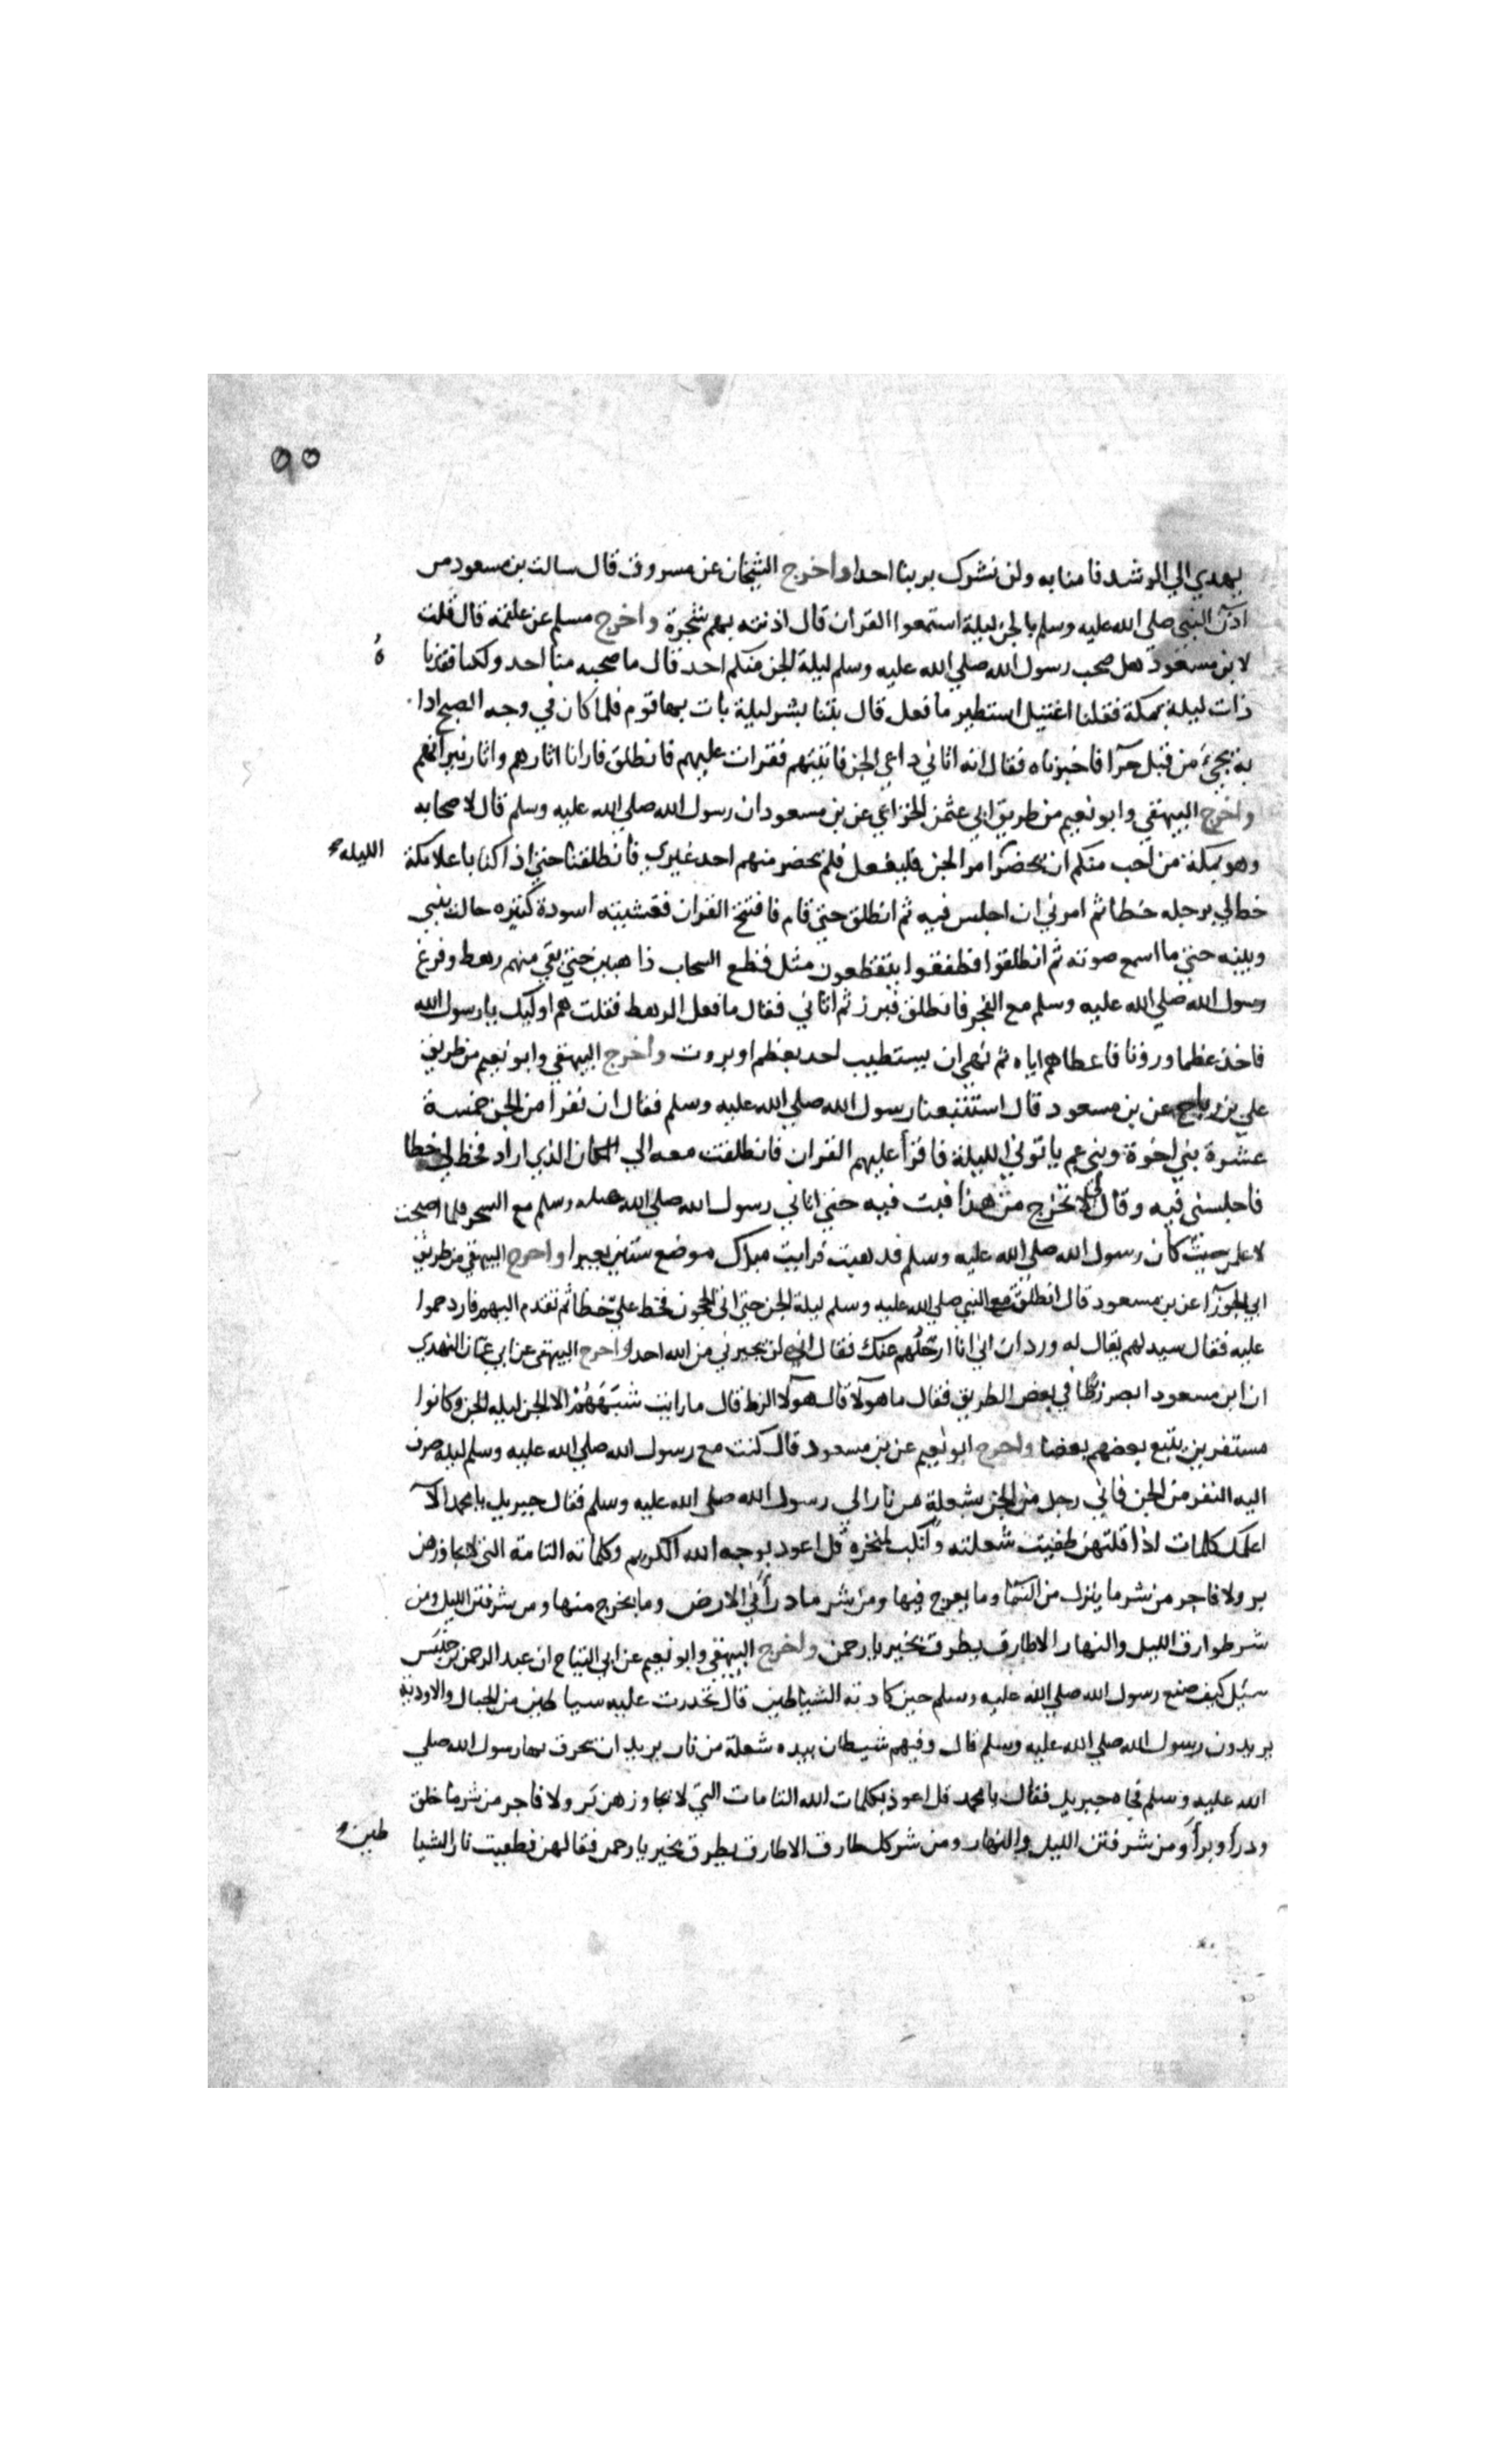 ٩٥
يهدي الي الرشد فامنا به ولن نشرك بربنا احدا واخرج الشيخان عن مسروق قال سالت بن مسعود من
اذن النبي صلي الله عليه وسلم بالجن ليلة استمعوا القران قال اذنته بهم شجرة واخرج مسلم عن علقمة قال قلت
لابن مسعود هل صحب رسول الله صلي الله عليه وسلم ليلة الجن منكم احد قال ما صحبه منا احد ولكنا فقدنا ه
ذات ليلة بمكة فقلنا اغتيل استطير ما فعل قال بتنا بشر ليلة بات بها قوم فلما كان في وجه الصبح اذا
به يجئ من قبل حرآ فاخبرناه فقال انه اتاني داعي الجن فاتيتهم فقرات عليهم فانطلق فارانا اثارهم واثار نيرانهم
واخرج البيهقي وابو نعيم من طريق ابي عثمن الخزاعي عن بن مسعود ان رسول الله صلي الله عليه وسلم قال لاصحابه
وهو بمكة من احب منكم ان يحضر امر الجن فليفعل فلم يحضر منهم احد غيري فانطلقنا حتي اذا كنا باعلا مكة الليله
خط لي برجله خطا ثم امرني ان اجلس فيه ثم انطلق حتي قام فافتتح القران فغشيته اسودة كثيره حالت بيني
وبينه حتي ما اسمع صوته ثم انطلقوا فطفقوا يتقطعون مثل قطع السحاب ذاهبين حتي بقي منهم رهط وفرغ
رسول الله صلي الله عليه وسلم مع الفجر فانطلق فبرز ثم اتاني فقال ما فعل الرهط فقلت هم اوليك يا رسول الله
فاخذ عظما وروثا فاعطاهم اياه ثم نهي ان يستطيب احد بعظم او بروث واخرج البيهقي وابو نعيم من طريق
علي بن رباح عن بن مسعود قال استتبعنا رسول الله صلي الله عليه وسلم فقال ان نفرا من الجن خمسة
عشرة بني اخوة وبني عم ياتوني الليلة فاقرأ عليهم القران فانطلقت معه الي المكان الذي اراد فخط لي خطا
فاجلسني فيه وقال لي لا تخرج من هذا فبت فيه حتي اتاني رسول الله صلي الله عليه وسلم مع السحر فلما اصبحت
لاعلمن حيث كان رسول الله صلي الله عليه وسلم فذهبت فرايت مبرك موضع ستين بعيرا واخرج البيهقي من طريق
ابي الجوزآ عن بن مسعود قال انطلقت مع النبي صلي الله عليه وسلم ليلة الجن حتي اتي الحجون فخط علي خطا ثم تقدم اليهم فازدحموا
عليه فقال سيد لهم يقال له وردان اني انا ارحلهم عنك فقال اني لن يجيرني من الله احد واخرج البيهقي عن ابي عثمان النهدي
ان ابن مسعود ابصر زطا في بعض الطريق فقال ما هولآ قال هولآ الزط قال ما رايت شبههم الا الجن ليلة الجن وكانوا
مستفرين يتبع بعضهم بعضا واخرج ابو نعيم عن بن مسعود قال كنت مع رسول الله صلي الله عليه وسلم ليلة صرف
اليه النفر من الجن فاتي رجل من الجن بشعلة من نار الي رسول الله صلي الله عليه وسلم فقال جبريل يا محمد الآ
اعلمك كلمات اذا قلتهن طفيت شعلته وانكب لمنخره قل اعوذ بوجه الله الكريم وكلماته التامة التي لا يجاوزهن
بر ولا فاجر من شر ما ينزل من السمآ وما يعرج فيها ومن شر ما ذرأ في الارض وما يخرج منها ومن شر فتن الليل ومن
شر طوارق الليل والنهار الا طارق يطرق بخير يا رحمن واخرج البيهقي وابو نعيم عن ابي التياح ان عبد الرحمن بن خنبس
سيل كيف صنع رسول الله صلي الله عليه وسلم حين كادته الشياطين قال تحدرت عليه سياطين من الجبال والاودية
يريدون رسول الله صلي الله عليه وسلم قال وفيهم شيطان بيده شعلة من نار يريد ان يحرق بها رسول الله صلي
الله عليه وسلم فجاه جبريل فقال يا محمد قل اعوذ بكلمات الله التامات التي لا يجاوزهن بر ولا فاجر من شر ما خلق
وذرأ وبرأ ومن شر فتن الليل والنهار ومن شر كل طارق الا طارق يطرق بخير يا رحمن فقالهن فطفيت نار الشيا طين